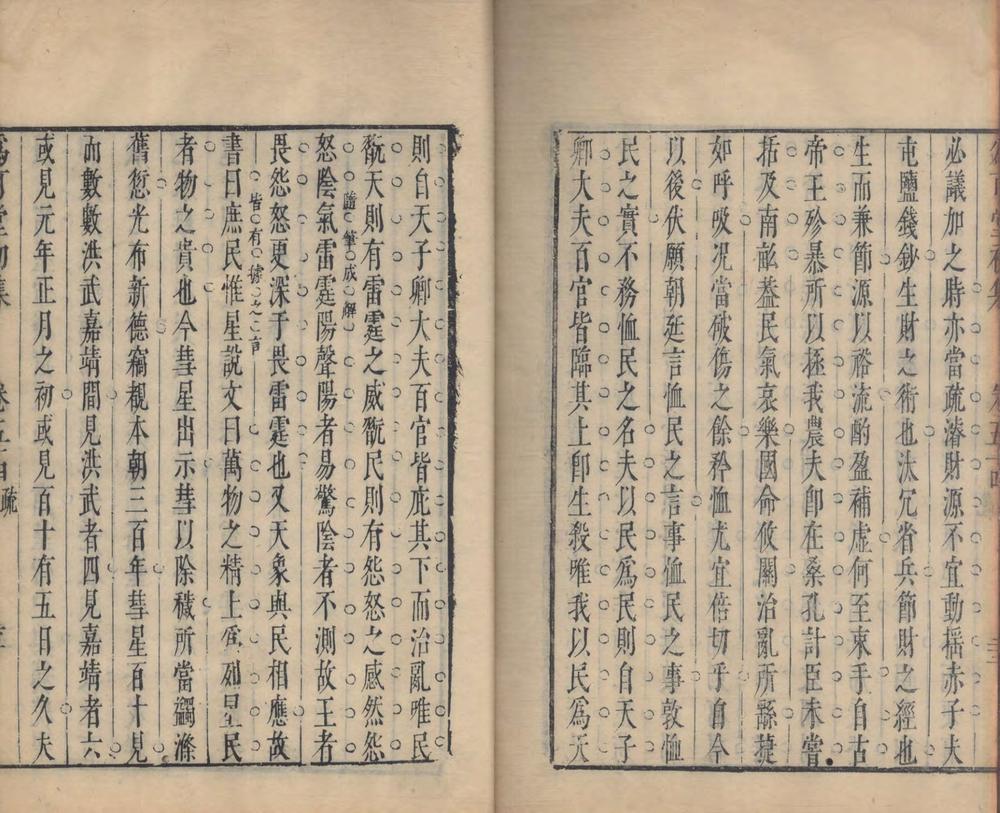 必議加之時亦當疏濬財源不宜動搖赤子夫
屯鹽錢鈔生財之術也汰冗省兵節財之經也
生而兼節源以裕流酌盈補虛何至束手自古
帝王殄暴所以拯我農夫卽在桑孔計臣未嘗
括及南畝蓋民氣哀樂國命攸關治亂所繇捷
如呼吸況當破傷之餘矜恤尤宜倍切乎自今
以後伏願朝廷言恤民之言事恤民之事敦恤
民之實不務恤民之名夫以民爲民則自天子
卿大夫百官皆臨其上卽生殺唯我以民爲天
則自天子卿大夫百官皆庇其下而治亂唯民
翫天則有雷霆之威翫民則有怨怒之感然怨
隨筆成解
怒陰氣雷霆陽聲陽者易驚陰者不測故王者
畏怨怒更深于畏雷霆也又天象與民相應故
皆有據之言
書曰庶民惟星說文曰萬物之精上爲列星民
者物之貴也今彗星出示彗以除穢所當蠲滌
舊愆光布新德竊覩本朝三百年彗星百十見
而數數洪武嘉靖間見洪武者四見嘉靖者六
或見元年正月之初或見百十有五日之久夫